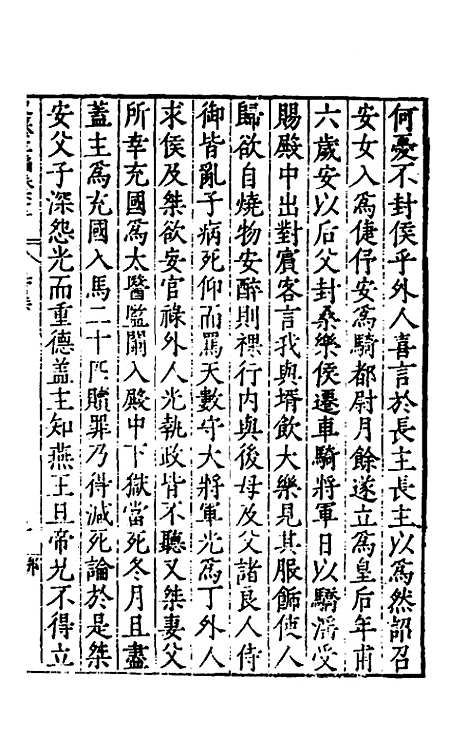 何憂不封侯乎外人喜言於長主長主以爲然詔召
安女入爲倢伃安爲騎都尉月餘遂立爲皇后年甫
六歲安以后父封桑樂侯遷車騎將軍日以驕滛受
賜殿中出對賓客言我與壻飲大樂見其服飾使人
歸欲自燒物安醉則裸行内與後母及父諸良人侍
御皆亂子病死仰而罵天數守大將軍光爲丁外人
求侯及桀欲妄官祿外人光執政皆不聽又桀妻父
所幸充國爲太醫監闌入殿中下獄當死冬月且盡
蓋主爲充國入馬二十匹贖罪乃得減死論於是桀
安父子深怨光而重德盖主知燕王旦帝兄不得立